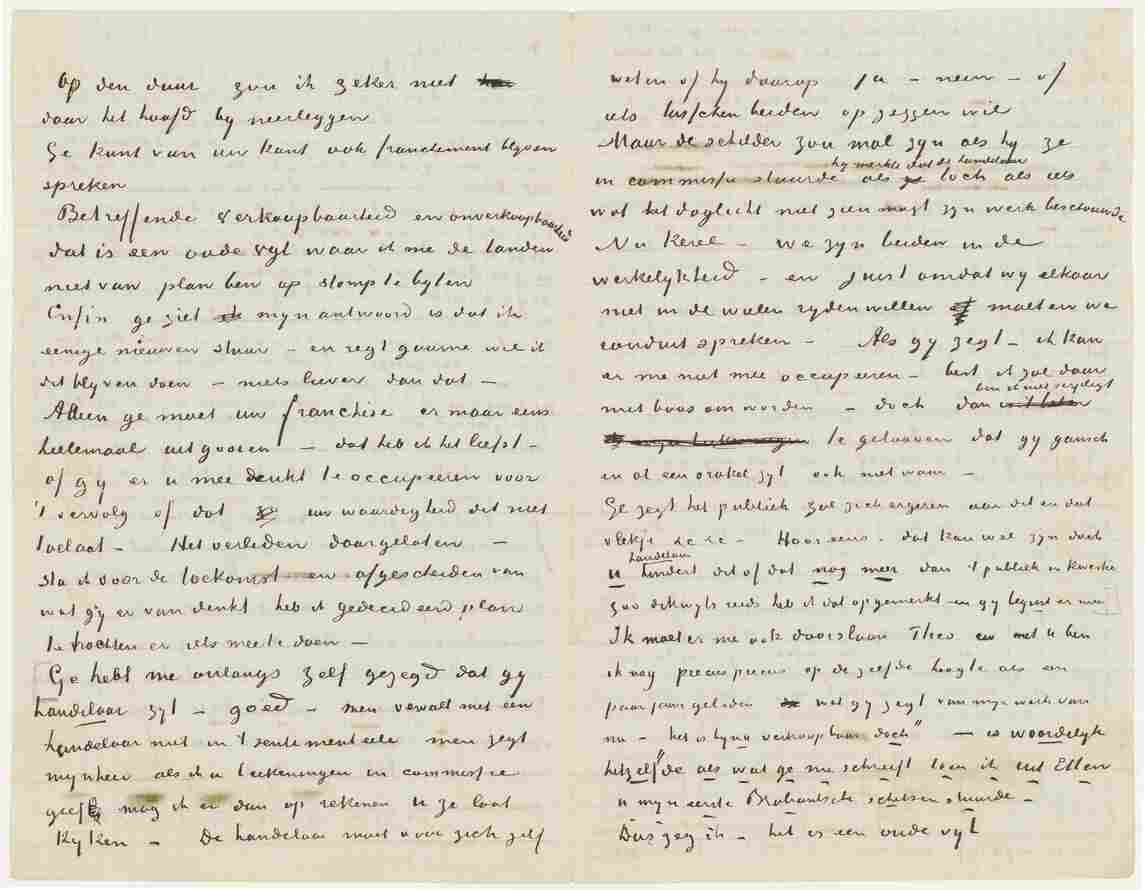 Op den duur zou ik zeker niet
daar het hoofd by neerleggen
Ge kunt van uw kant ook franchement blyven
spreken
Betreffende Verkoopbaarheid en onverkoopbaarheid
dat is een oude vyl waar ik me de tanden
niet van plan ben op stomp te byten
Enfin ge ziet myn antwoord is dat ik
eenige nieuwen stuur – en regt gaarne wil ik
dit blyven doen – niets liever dan dat –
Alleen ge moet uw franchise er maar eens
heelemaal uitgooien – dat heb ik het liefst –
of gy er u mee denkt te occupeeren voor
't vervolg of dat uw waardigheid dit niet
toelaat – Het verleden daargelaten –
sta ik voor de toekomst en afgescheiden van
wat gy er van denkt heb ik gedecideerd plan
te trachten er iets mee te doen –
Ge hebt me onlangs zelf gezegd dat gy
handelaar zyt – goed – men vervalt met een
handelaar niet in 't sentimenteele men zegt
mynheer als ik u teekeningen in commissie
geef mag ik er dan op rekenen u ze laat
kyken – De handelaar moet voor zich zelf
weten of hy daarop ja – neen – of
iets tusschen beiden op zeggen wil
Maar de schilder zou mal zyn als hy ze
in commissie stuurde als hy merkte dat de handelaar toch als iets
wat het daglicht niet zien mogt zyn werk beschouwde
Nu Kerel – we zyn beiden in de
werkelykheid – en juist omdat wy elkaar
niet in de wielen ryden willen moeten we
ronduit spreken – Als gy zegt – ik kan
er me niet mee occupeeren – best ik zal daar
niet boos om worden – doch dan ben ik niet verpligt
te gelooven dat gy gansch
en al een orakel zyt ook niet waar –
Ge zegt het publiek zal zich ergeren aan dit en dat
vlekje &c &c – Hoor eens – dat kan wel zyn doch
u handelaar hindert dit of dat nog meer dan 't publiek in kwestie
zoo dikwyls reeds heb ik dat opgemerkt – en gy begint er mee
Ik moet er me ook doorslaan Theo en met u ben
ik nog precies precies op dezelfde hoogte als een
paar jaar geleden wat gy zegt van myn werk van
nu – "het is byna verkoopbaar doch" – is woordelyk
hetzelfde als wat ge me schreeft toen ik uit Etten
u myn eerste Brabantsche schetsen stuurde –
Dus zeg ik – het is een oude vyl